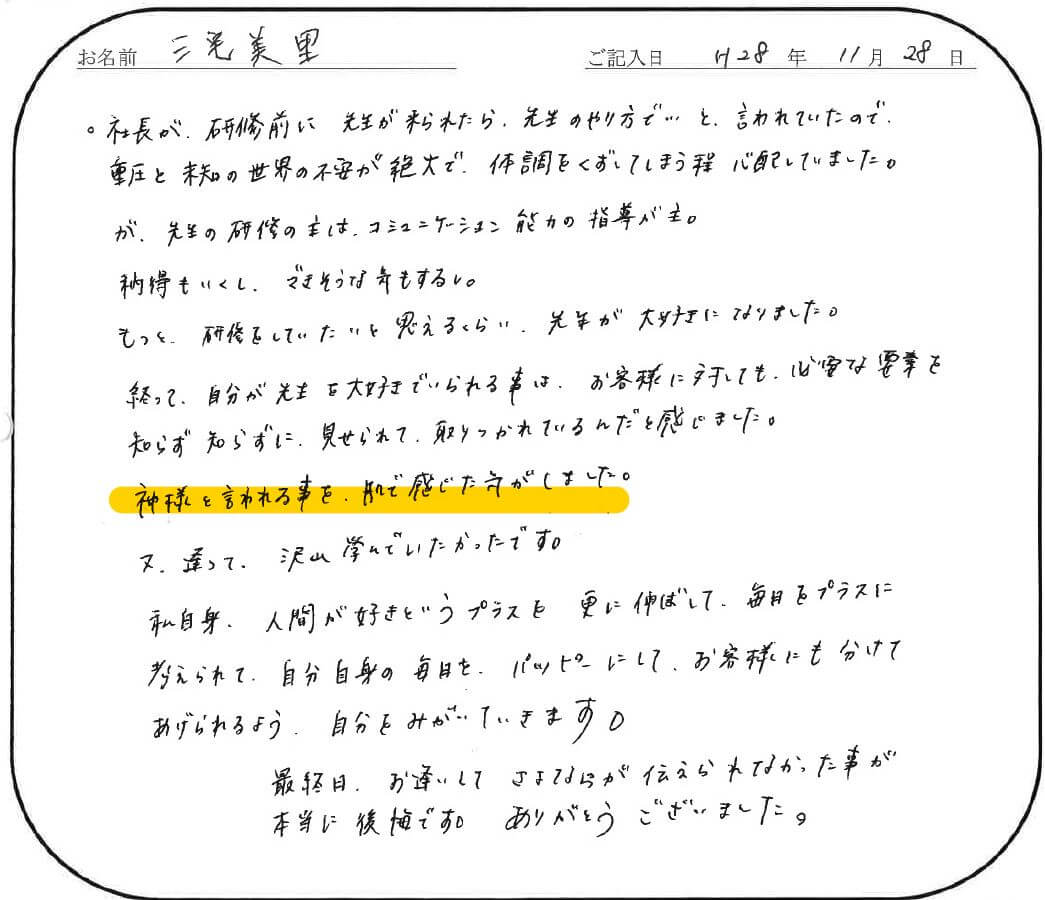 お名前 三宅美里 ご記入日 H28年 11月 28日
。社長が、研修前に 先生が来られたら、先生のやり方で… と、言われていたので、
重圧と 未知の世界の不安が絶大で、体調をくずしてしまう程 心配していました。
が、先生の研修の主は、コミュニケーション 能力の指導が主。
納得もいくし、できそうな気もするし。
もっと、研修をしていたいと思えるくらい、先生が 大好きになりました。
経って、自分が先生を大好きでいられる事は、お客様に対しても、必要な要素を
知らず知らずに、見せられて、取りつかれているんだと感じました。
神様と言われる事を、肌で感じた気がしました。
又、逢って、沢山 学んでいたかったです。
私自身、人間が好きというプラスを 更に伸ばして、毎日をプラスに
考えられて、自分自身の毎日を、ハッピーにして、お客様にも分けて
あげられるよう、自分をみがいていきます。
最終日、お逢いして さよならが伝えられなかった事が
本当に後悔です。ありがとうございました。